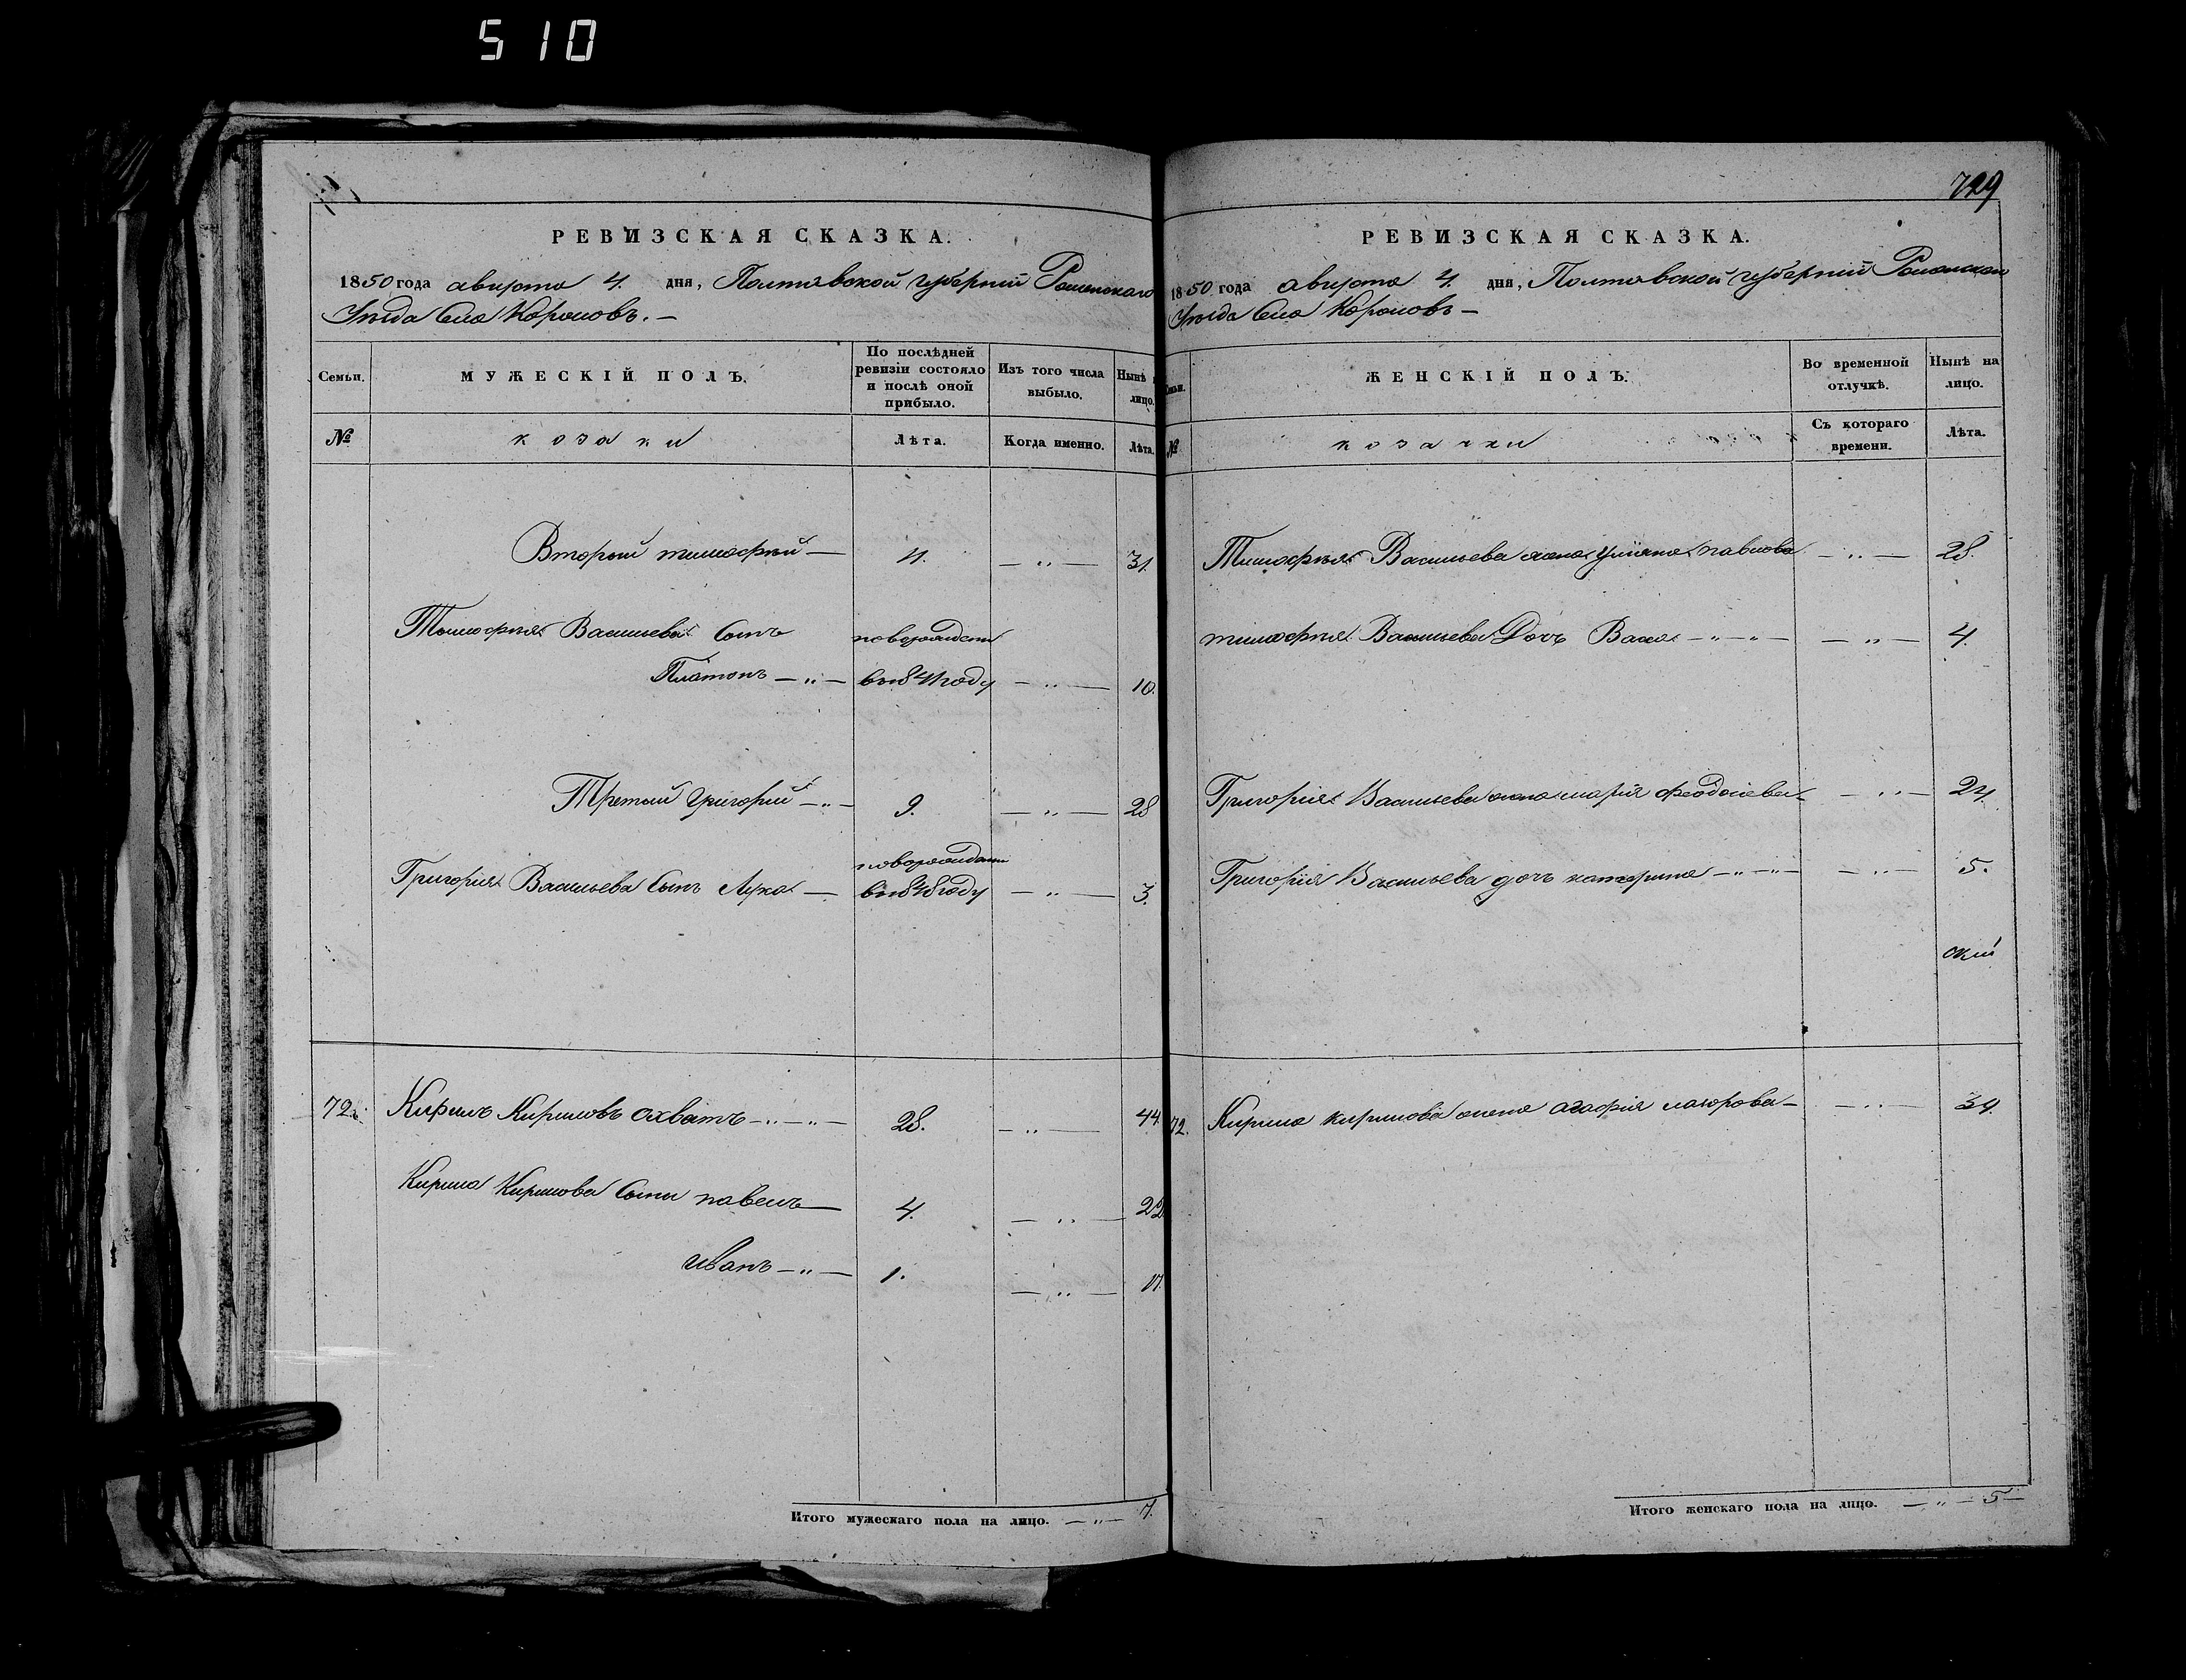 510
729
РЕВИЗСКАЯ СКАЗКА.
1850 года августа 4. дня, Полтавской губерніи Роменскаго
Уѣзда Села Корововъ. —
Семьи.
МУЖЕСКІЙ ПОЛЪ.
По послѣдней ревизіи состояло и послѣ оной прибыло.
Изъ того числа выбыло.
Нынѣ на лицо.
№
козаки
Лѣта.
Когда именно.
Лѣта.
Вторый тимофѣй — 11. — „ — 31.
Тимофѣя Васильева Сынъ новорожденъ
Платонъ — „ — въ 1841 году — „ — 10.
Третій Григорій — „ — 9. — „ — 28
новорожденъ
Григорія Васильева Сынъ Лука — въ 1848 году — „ — 3.
72. Кирилъ Кириловъ охватъ — „ — „ — 28. — „ — 44.
Кирила Кирилова Сыны павелъ — 4. — „ — 22
Иванъ — „ — 1. — „ — 17.
Итого мужескаго пола на лицо. — „ — 7.
РЕВИЗСКАЯ СКАЗКА.
1850 года августа 4. дня, Полтавской губерніи Роменскаго
Уѣзда Села Корововъ —
Семьи.
ЖЕНСКІЙ ПОЛЪ.
Во временной отлучкѣ.
Нынѣ на лицо.
№
козачки
Съ котораго времени.
Лѣта.
Тимофѣя Васильева жена уліяна павлова — „ — 28.
тимофѣя Васильева Дочь Васса — „ — „ — — „ — 4.
Григорія Васильева жена марія феодосіева — — „ — 24.
Григорія Васильева дочь катерина — „ — „ — — „ — 5.
72. Кирила кирилова жена агафія лазорева — — „ — 34.
Итого женскаго пола на лицо. — „ — 5 —